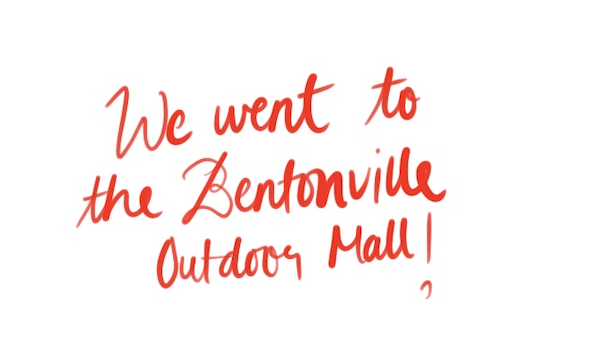 We went to
the Bentonville
Outdoor Mall!